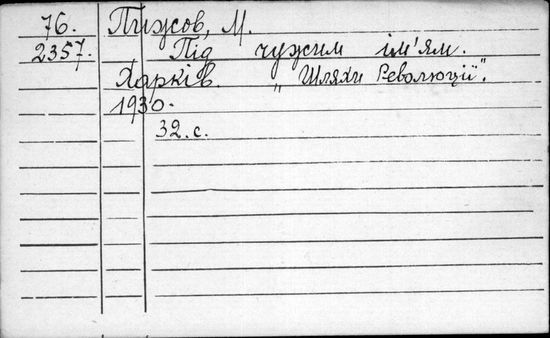 76. Пижов, М.
2357. Під чужим ім'ям.
Харків. „Шляхи Революції".
1930.
32. с.